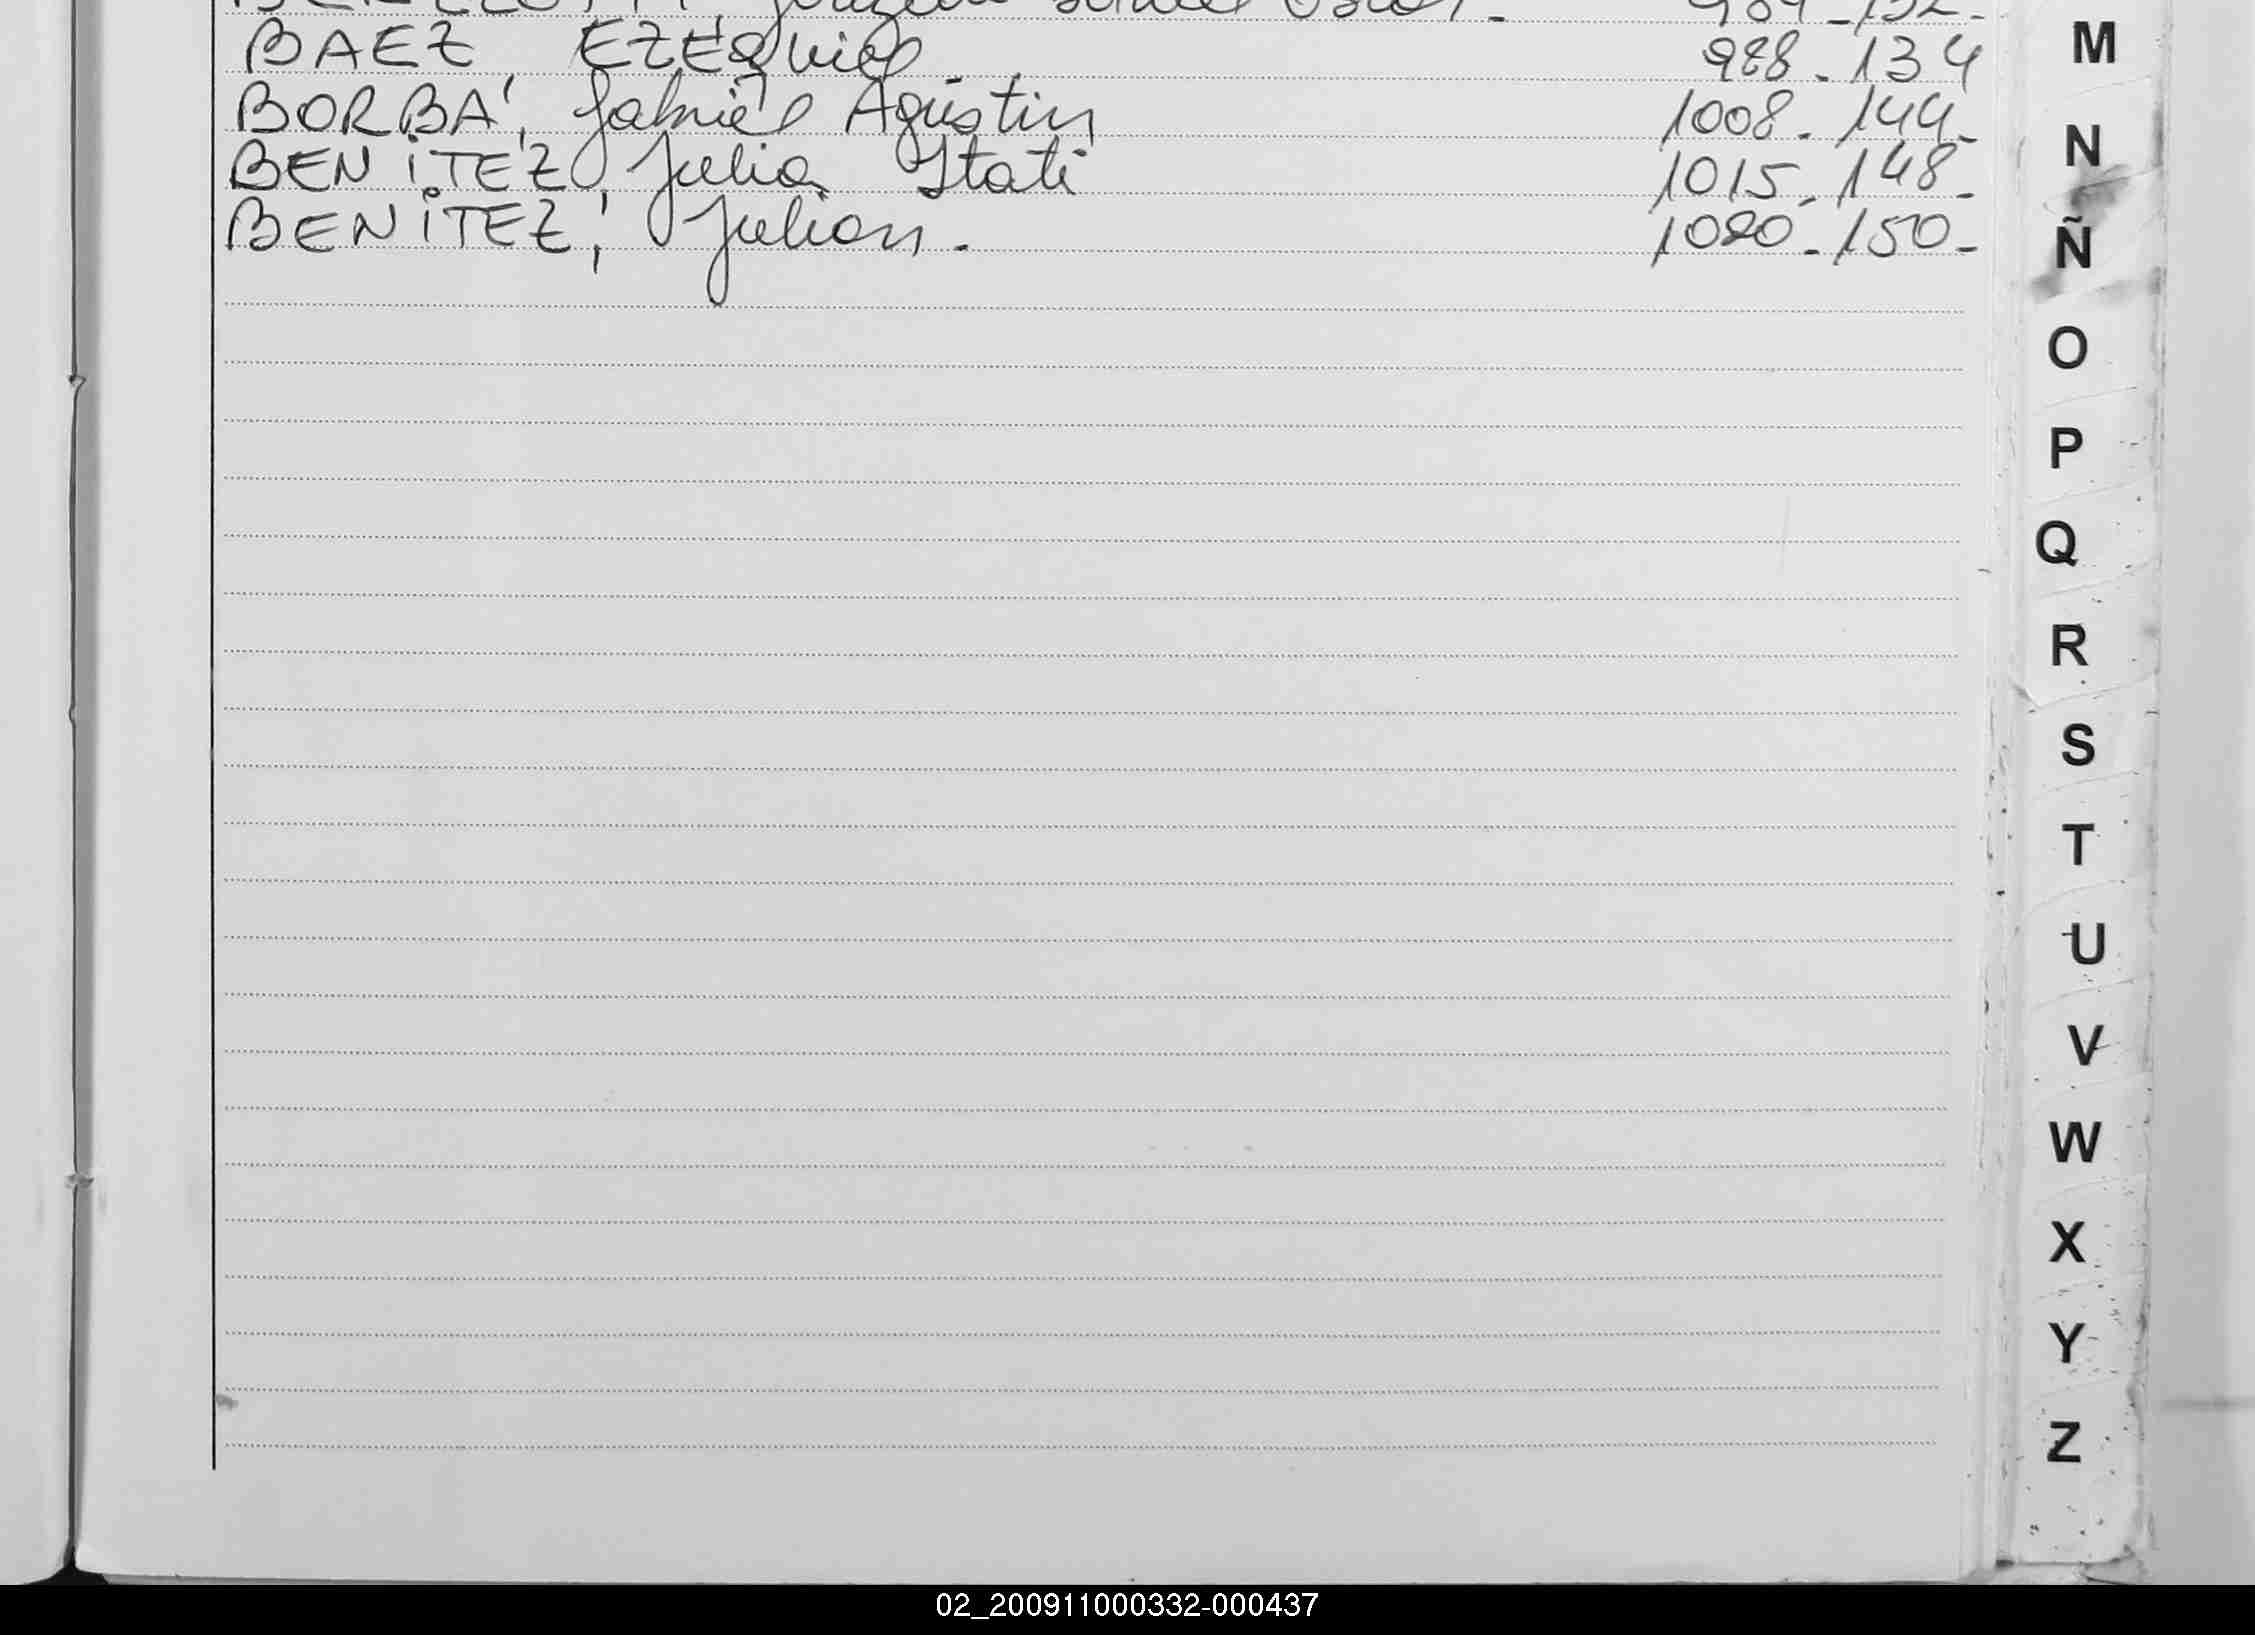 BAEZ, EZEQUIEL. 988-134
BORBA, Gabriel Agustin 1008-144-
BENITEZ, Julia Itati 1015-148-
BENITEZ, Julian. 1020-150-
M
N
Ñ
O
P
Q
R
S
T
U
V
W
X
Y
Z
02_200911000332-000437